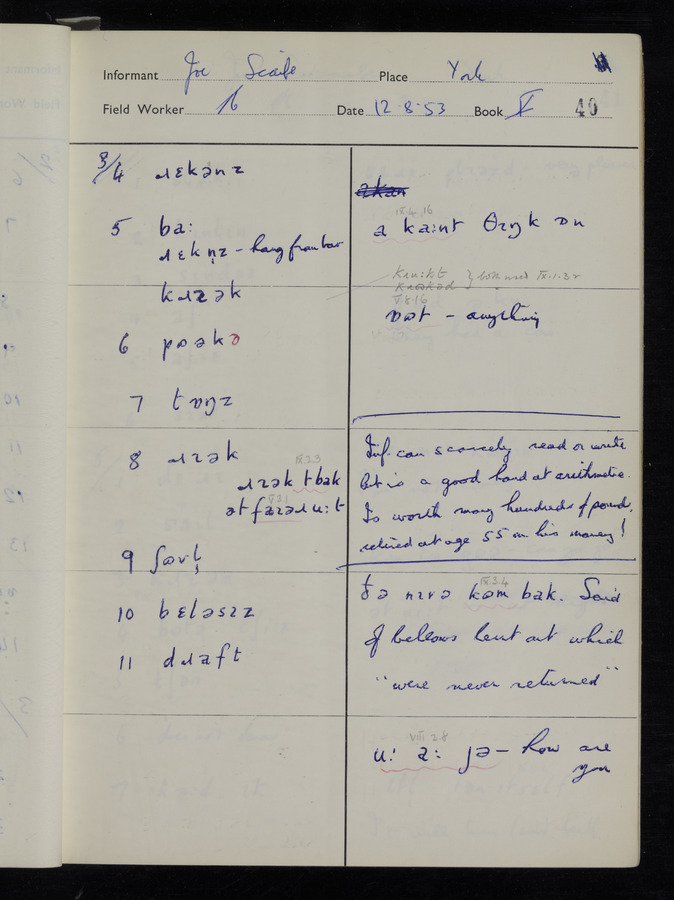 Informant Joe Scaife Place York
Field Worker Date 12-8-53 Book V 40
3/4 ɹɛkənz
5 ba:
ɹɛkn̩z - hang from bar
kɹɪək
6 pʊəkə
7 tɒŋz
8 ɹɪək
IX.2.3
ɹɪək t bak
ət faɪəɹ u:t
9 ʃɒvl̩
10 bɛləsɪz
11 dɹaft
IX.4.16
a ka:nt θɪŋk ɒn
IX.1.32
V.8.16
ɒʊt - anything
Inf. can scarcely read or write
but is a good hand at arithmetic.
Is worth many hundreds of pounds,
retired at age 55 on his money!
IX.3.4
ðə nɪvə kɒm bak. Said
of bellows lent out which
"were never returned"
VIII.2.8
u: a: jə - how are
you